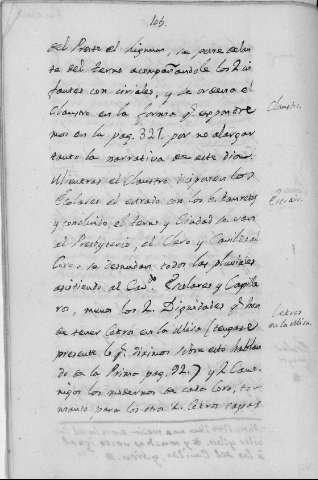 106.
del Preste el dignum, se pone delan
te del terno acompañandole los 2 in
fantes con ciriales, y se ordena el
Claustro en la forma q.e expondre
mos en la pag. 327. por no alargar
tanto la narrativa de este dia.
Mientras el Claustro disponen los
Escolares el estrado con los taburetes
y concluido, el terno y Ciudad se van
al Presbyterio, el Clero y Cavildo al
Coro, se desnudan todos las pluviales
asistiendo al Escolares y Capille
ros, menos los 2. Dignidades q.e han
de tener Cetro en la Missa (tengase
presente lo q.e diximos sobre esto hablan
do de la Prima pag. 92.) y 2. Cano
nigos los modernos de cada Coro, to
mando para los otros 2. Cetros capas
Claustro.
Estrado.
Cetros
en la Missa.